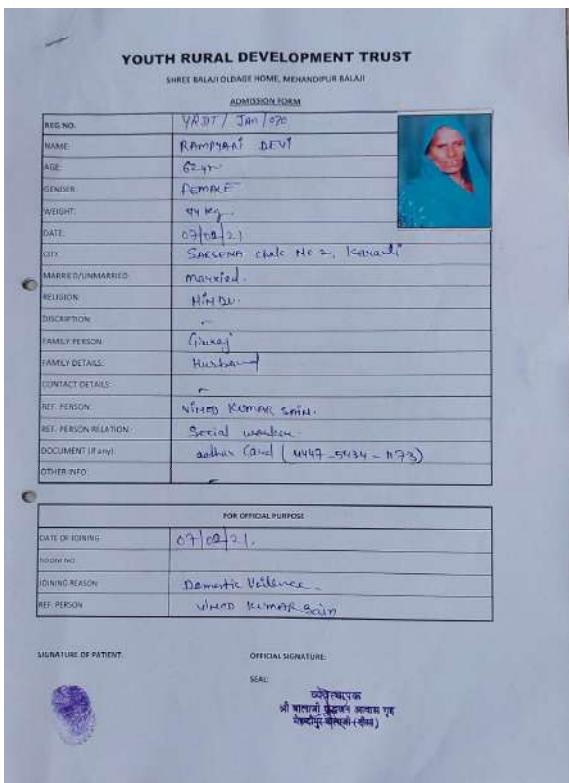 YOUTH RURAL DEVELOPMENT TRUST
SHREE BALAJI OLDAGE HOME, MEHANDIPUR BALAJI
ADMISSION FORM
REG NO. YRDT / Jan / 070
NAME: RAMPYARI DEVI
AGE: 62 yr
GENDER: FEMALE
WEIGHT: 44 kg
DATE: 07/02/21
CITY: Chak No 2, Karauli
MARRIED/UNMARRIED: married.
RELIGION: HINDU.
DISCRIPTION:
FAMILY PERSON: Girraj
FAMILY DETAILS: Husband
CONTACT DETAILS:
REF. PERSON: VINOD KUMAR SAIN.
REF. PERSON RELATION: Social worker
DOCUMENT (if any): aadhar Card (4447-5434-1173)
OTHER INFO:
FOR OFFICIAL PURPOSE
DATE OF JOINING 07/02/21.
ROOM NO
JOINING REASON Domestic Voilence
REF. PERSON VINOD KUMAR Sain
SIGNATURE OF PATIENT: OFFICIAL SIGNATURE:
SEAL:
व्यवस्थापक
श्री बालाजी वृद्धजन आवास गृह
मेहन्दीपुर बालाजी (दौसा)